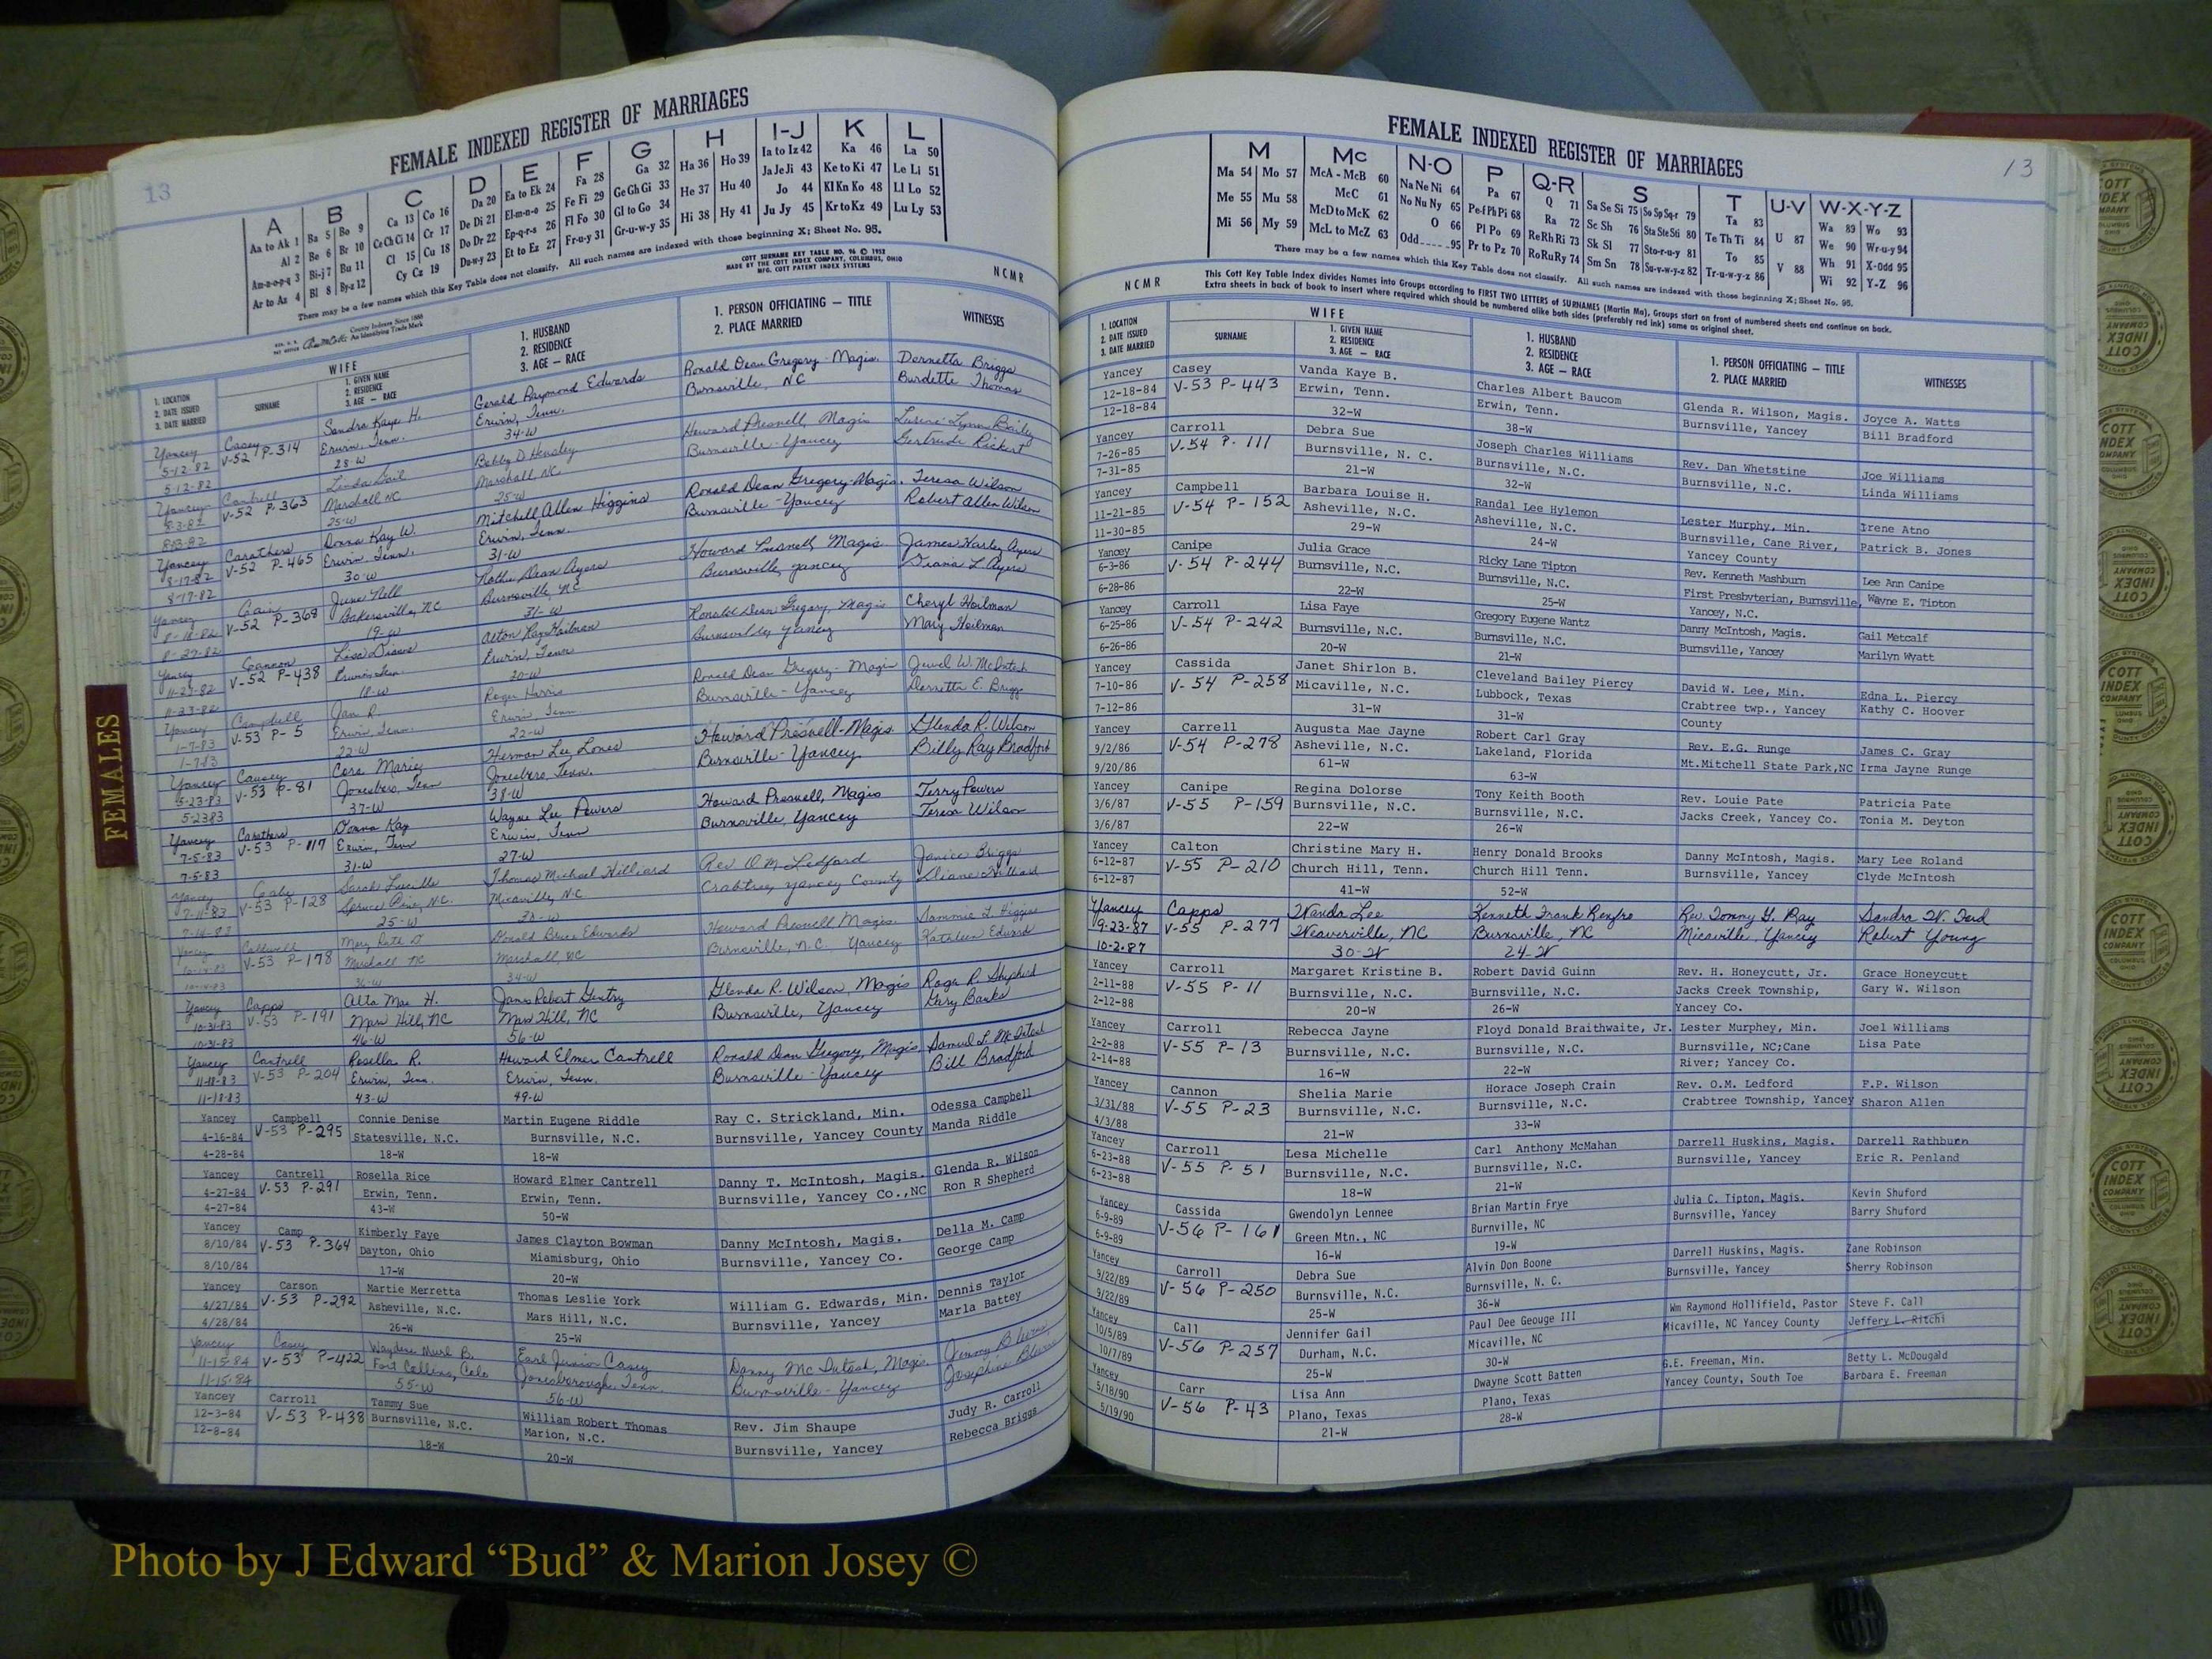 13
FEMALE INDEXED REGISTER OF MARRIAGES
A B C D E F G H I-J K L
Aa to Ak 1 Ba 5 Bo 9 Ca 13 Co 16 Da 20 Ea to Ek 24 Fa 28 Ga 32 Ha 36 Ho 39 Ia to Iz 42 Ka 46 La 50
Al 2 Be 6 Br 10 Ce Ch Ci 14 Cr 17 De Di 21 El-m-n-o 25 Fe Fi 29 Ge Gh Gi 33 He 37 Hu 40 Ja Je Ji 43 Ke to Ki 47 Le Li 51
Am-n-o-p-q 3 Bi-j 7 Bu 11 Cl 15 Cu 18 Do Dr 22 Ep-q-r-s 26 Fl Fo 30 Gl to Go 34 Hi 38 Hy 41 Jo 44 Kl Kn Ko 48 Ll Lo 52
Ar to Az 4 Bl 8 By-z 12 Cy Cz 19 Du-w-y 23 Et to Ez 27 Fr-u-y 31 Gr-u-w-y 35 Ju Jy 45 Kr to Kz 49 Lu Ly 53
There may be a few names which this Key Table does not classify. All such names are indexed with those beginning X; Sheet No. 95.
COTT SURNAME KEY TABLE NO. 96 © 1952
MADE BY THE COTT INDEX COMPANY, COLUMBUS, OHIO
MFG. COTT PATENT INDEX SYSTEMS
NCMR
County Indexes Since 1888
An Identifying Trade Mark
1. LOCATION
2. DATE ISSUED
3. DATE MARRIED
WIFE
SURNAME
1. GIVEN NAME
2. RESIDENCE
3. AGE — RACE
1. HUSBAND
2. RESIDENCE
3. AGE — RACE
1. PERSON OFFICIATING — TITLE
2. PLACE MARRIED
WITNESSES
Yancey Casey Sandra Kaye H. Gerald Raymond Edwards Ronald Dean Gregory - Magis. Dornetta Briggs
5-12-82 V-52 P-314 Erwin, Tenn. Erwin, Tenn. Burnsville, NC Burdette Thomas
5-12-82 28-W 34-W
Yancey Cantrell Linda Gail Bobby D Hensley Howard Presnell, Magis
8-3-82 V-52 P-363 Marshall NC Marshall, NC Burnsville - Yancey Gertrude Rickert
25-W 25-W
Yancey Carathers Donna Kay W. Mitchell Allen Higgins Ronald Dean Gregory-Magis. Teresa Wilson
8-17-82 V-52 P-465 Erwin, Tenn. Erwin, Tenn. Burnsville - Yancey Robert Allen Wilson
8-17-82 30-W 31-W
Yancey Cain June Nell Dean Ayers Howard Presnell, Magis James Harley Ayers
V-52 P-368 Bakersville, NC Burnsville, NC Burnsville, Yancey Diana L Ayers
8-27-82 19-W 31-W
Yancey Cannon Lisa Diane Alton Ray Heilman Ronald Dean Gregory, Magis Cheryl Heilman
V-52 P-438 Erwin, Tenn Burnsville, Yancey Mary Heilman
11-23-82 18-W 20-W
Yancey Campbell Jan R. Roger Harris Ronald Dean Gregory - Magis Jewel W. McIntosh
1-7-83 V-53 P-5 Erwin, Tenn. Erwin, Tenn Burnsville - Yancey Dornetta E. Briggs
1-7-83 22-W 22-W
Yancey Causey Cora Marie Herman Lee Jones Howard Presnell-Magis. Glenda R. Wilson
5-23-83 V-53 P-81 Jonesboro, Tenn Jonesboro, Tenn. Burnsville - Yancey Billy Ray Bradford
5-2383 37-W 38-W
Yancey Carathers Donna Kay Wayne Lee Powers Howard Presnell, Magis Terry Powers
7-5-83 V-53 P-117 Erwin, Tenn Erwin, Tenn Burnsville, Yancey Teresa Wilson
7-5-83 31-W 27-W
Yancey Sarah Lucille Thomas Michael Hilliard Rev O.M. Ledford Janice Briggs
7-11-83 V-53 P-128 Spruce Pine, N.C. Micaville, N.C Crabtree, Yancey County Diane Hilliard
25-W
Yancey Caldwell Donald Bruce Edwards Howard Presnell Magis. Sammie L. Higgins
V-53 P-178 Marshall NC Marshall, NC Burnsville, N.C. Yancey Kathleen Edwards
34-W
Yancey Capps Alta Mae H. James Robert Gentry Glenda R. Wilson, Magis Roger R. Shepherd
10-31-83 V-53 P-191 Mars Hill, NC Mars Hill, NC Burnsville, Yancey Gary Banks
10-31-83 46-W 56-W
Yancey Cantrell Rosella R. Howard Elmer Cantrell Ronald Dean Gregory, Magis. Samuel L. McIntosh
11-18-83 V-53 P-204 Erwin, Tenn. Erwin, Tenn. Burnsville - Yancey Bill Bradford
11-18-83 43-W 49-W
Yancey Campbell Connie Denise Martin Eugene Riddle Ray C. Strickland, Min. Odessa Campbell
4-16-84 V-53 P-295 Statesville, N.C. Burnsville, N.C. Burnsville, Yancey County Manda Riddle
4-28-84 18-W 18-W
Yancey Cantrell Rosella Rice Howard Elmer Cantrell Danny T. McIntosh, Magis. Glenda R. Wilson
4-27-84 V-53 P-291 Erwin, Tenn. Erwin, Tenn. Burnsville, Yancey Co.,NC Ron R Shepherd
4-27-84 43-W 50-W
Yancey Camp Kimberly Faye James Clayton Bowman Danny McIntosh, Magis. Della M. Camp
8/10/84 V-53 P-364 Dayton, Ohio Miamisburg, Ohio Burnsville, Yancey Co. George Camp
8/10/84 17-W 20-W
Yancey Carson Martie Merretta Thomas Leslie York William G. Edwards, Min. Dennis Taylor
4/27/84 V-53 P-292 Asheville, N.C. Mars Hill, N.C. Burnsville, Yancey Marla Battey
4/28/84 26-W 25-W
Yancey Casey Waydene Murl B. Earl Junior Casey Danny McIntosh, Magis.
11-15-84 V-53 P-422 Fort Collins, Colo Jonesborough, Tenn. Burnsville - Yancey Josephine
11-15-84 55-W 56-W
Yancey Carroll Tammy Sue William Robert Thomas Rev. Jim Shaupe Judy R. Carroll
12-3-84 V-53 P-438 Burnsville, N.C. Marion, N.C. Burnsville, Yancey Rebecca Briggs
12-8-84 18-W 20-W
FEMALES
13
FEMALE INDEXED REGISTER OF MARRIAGES
M Mc N-O P Q-R S T U-V W-X-Y-Z
Ma 54 Mo 57 McA - McB 60 Na Ne Ni 64 Pa 67 Q 71 Sa Se Si 75 So Sp Sq-r 79 Ta 83 U 87 Wa 89 Wo 93
Me 55 Mu 58 McC 61 No Nu Ny 65 Pe-f Ph Pi 68 Ra 72 Sc Sh 76 Sta Ste Sti 80 Te Th Ti 84 V 88 We 90 Wr-u-y 94
Mi 56 My 59 McD to McK 62 O 66 Pl Po 69 Re Rh Ri 73 Sk Sl 77 Sto-r-u-y 81 To 85 Wh 91 X-Odd 95
McL to McZ 63 Odd 95 Pr to Pz 70 Ro Ru Ry 74 Sm Sn 78 Su-v-w-y-z 82 Tr-u-w-y-z 86 Wi 92 Y-Z 96
There may be a few names which this Key Table does not classify. All such names are indexed with those beginning X; Sheet No. 95.
NCMR
This Cott Key Table Index divides Names into Groups according to FIRST TWO LETTERS of SURNAMES (Martin Ma), Groups start on front of numbered sheets and continue on back.
Extra sheets in back of book to insert where required which should be numbered alike both sides (preferably red ink) same as original sheet.
1. LOCATION
2. DATE ISSUED
3. DATE MARRIED
WIFE
SURNAME
1. GIVEN NAME
2. RESIDENCE
3. AGE — RACE
1. HUSBAND
2. RESIDENCE
3. AGE — RACE
1. PERSON OFFICIATING — TITLE
2. PLACE MARRIED
WITNESSES
Yancey Casey Vanda Kaye B. Charles Albert Baucom Glenda R. Wilson, Magis. Joyce A. Watts
12-18-84 V-53 P-443 Erwin, Tenn. Erwin, Tenn. Burnsville, Yancey Bill Bradford
12-18-84 32-W 38-W
Yancey Carroll Debra Sue Joseph Charles Williams Rev. Dan Whetstine Joe Williams
7-26-85 V-54 P-111 Burnsville, N. C. Burnsville, N.C. Burnsville, N.C. Linda Williams
7-31-85 21-W 32-W
Yancey Campbell Barbara Louise H. Randal Lee Hylemon Lester Murphy, Min. Irene Atno
11-21-85 V-54 P-152 Asheville, N.C. Asheville, N.C. Burnsville, Cane River, Patrick B. Jones
11-30-85 29-W 24-W Yancey County
Yancey Canipe Julia Grace Ricky Lane Tipton Rev. Kenneth Mashburn Lee Ann Canipe
6-3-86 V-54 P-244 Burnsville, N.C. Burnsville, N.C. First Presbyterian, Burnsville, Wayne E. Tipton
6-28-86 22-W 25-W Yancey, N.C.
Yancey Carroll Lisa Faye Gregory Eugene Wantz Danny McIntosh, Magis. Gail Metcalf
6-25-86 V-54 P-242 Burnsville, N.C. Burnsville, N.C. Burnsville, Yancey Marilyn Wyatt
6-26-86 20-W 21-W
Yancey Cassida Janet Shirlon B. Cleveland Bailey Piercy David W. Lee, Min. Edna L. Piercy
7-10-86 V-54 P-258 Micaville, N.C. Lubbock, Texas Crabtree twp., Yancey Kathy C. Hoover
7-12-86 31-W 31-W County
Yancey Carrell Augusta Mae Jayne Robert Carl Gray Rev. E.G. Runge James C. Gray
9/2/86 V-54 P-278 Asheville, N.C. Lakeland, Florida Mt.Mitchell State Park,NC Irma Jayne Runge
9/20/86 61-W 63-W
Yancey Canipe Regina Dolorse Tony Keith Booth Rev. Louie Pate Patricia Pate
3/6/87 V-55 P-159 Burnsville, N.C. Burnsville, N.C. Jacks Creek, Yancey Co. Tonia M. Deyton
3/6/87 22-W 26-W
Yancey Calton Christine Mary H. Henry Donald Brooks Danny McIntosh, Magis. Mary Lee Roland
6-12-87 V-55 P-210 Church Hill, Tenn. Church Hill Tenn. Burnsville, Yancey Clyde McIntosh
6-12-87 41-W 52-W
Yancey Capps Wanda Lee Kenneth Frank Renfro Rev. Tommy G. Ray Sandra W. Ford
9-23-87 V-55 P-277 Weaverville, NC Burnsville, NC Micaville, Yancey Robert Young
10-2-87 30-W 24-W
Yancey Carroll Margaret Kristine B. Robert David Guinn Rev. H. Honeycutt, Jr. Grace Honeycutt
2-11-88 V-55 P-11 Burnsville, N.C. Burnsville, N.C. Jacks Creek Township, Gary W. Wilson
2-12-88 20-W 26-W Yancey Co.
Yancey Carroll Rebecca Jayne Floyd Donald Braithwaite, Jr. Lester Murphey, Min. Joel Williams
2-2-88 V-55 P-13 Burnsville, N.C. Burnsville, N.C. Burnsville, NC;Cane Lisa Pate
2-14-88 16-W 22-W River; Yancey Co.
Yancey Cannon Shelia Marie Horace Joseph Crain Rev. O.M. Ledford F.P. Wilson
3/31/88 V-55 P-23 Burnsville, N.C. Burnsville, N.C. Crabtree Township, Yancey Sharon Allen
4/3/88 21-W 33-W
Yancey Carroll Lesa Michelle Carl Anthony McMahan Darrell Huskins, Magis. Darrell Rathburn
6-23-88 V-55 P-51 Burnsville, N.C. Burnsville, N.C. Burnsville, Yancey Eric R. Penland
6-23-88 18-W 21-W
Yancey Cassida Gwendolyn Lennee Brian Martin Frye Julia C. Tipton, Magis. Kevin Shuford
6-9-89 V-56 P-161 Green Mtn., NC Burnville, NC Burnsville, Yancey Barry Shuford
6-9-89 16-W 19-W
Yancey Carroll Debra Sue Alvin Don Boone Darrell Huskins, Magis. Zane Robinson
9/22/89 V-56 P-250 Burnsville, N.C. Burnsville, N. C. Burnsville, Yancey Sherry Robinson
9/22/89 25-W 36-W
Yancey Call Jennifer Gail Paul Dee Geouge III Wm Raymond Hollifield, Pastor Steve F. Call
10/5/89 V-56 P-257 Durham, N.C. Micaville, NC Micaville, NC Yancey County Jeffery L. Ritchi
10/7/89 25-W 30-W
Yancey Carr Lisa Ann Dwayne Scott Batten G.E. Freeman, Min. Betty L. McDougald
5/18/90 V-56 P-43 Plano, Texas Plano, Texas Yancey County, South Toe Barbara E. Freeman
5/19/90 21-W 28-W
COTT
INDEX
COMPANY
COLUMBUS
OHIO
Photo by J Edward “Bud” & Marion Josey ©